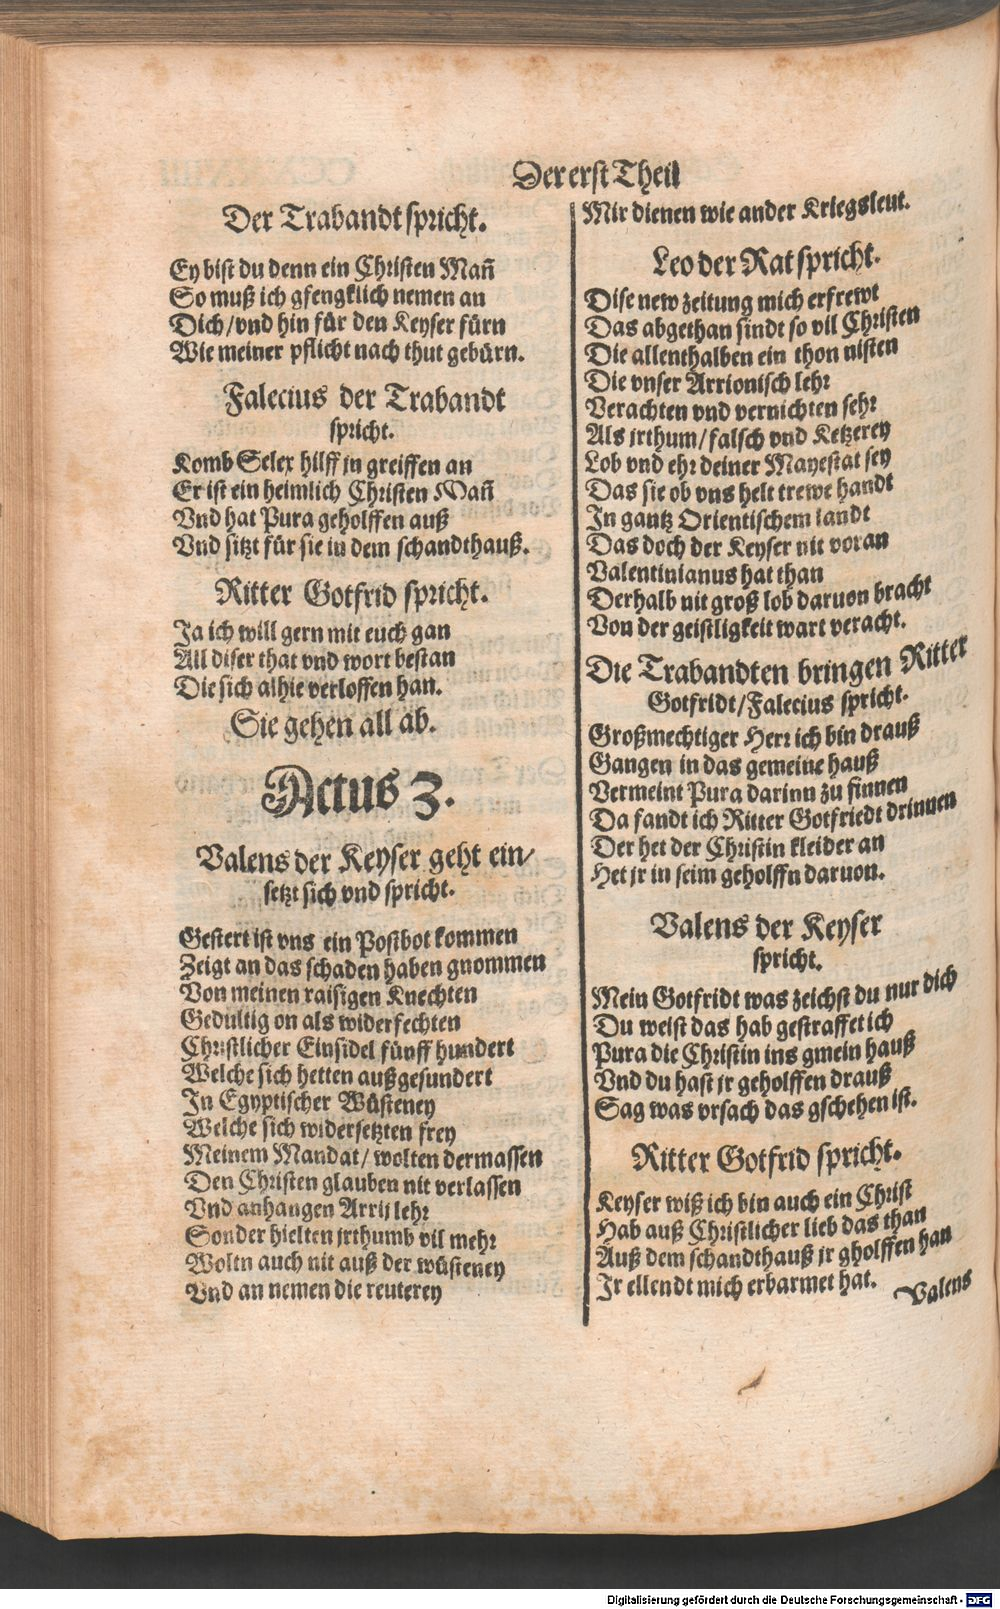 Der erst Theil
Der Trabandt spricht.
Ey bist du denn ein Christen Mañ
So muß ich gfengklich nemen an
Dich/vnd hin für den Keyser fürn
Wie meiner pflicht nach thut gebürn.
Falecius der Trabandt
spricht.
Komb Selex hilff jn greiffen an
Er ist ein heimlich Christen Mañ
Vnd hat Pura geholffen auß
Vnd sitzt für sie in dem schandthauß.
Ritter Gotfrid spricht.
Ja ich will gern mit euch gan
All diser that vnd wort bestan
Die sich alhie verloffen han.
Sie gehen all ab.
Actus 3.
Valens der Keyser geht ein/
setzt sich vnd spricht.
Gestert ist vns ein Postbot kommen
Zeigt an das schaden haben gnommen
Von meinen raisigen Knechten
Gedultig on als widerfechten
Christlicher Einsidel fünff hundert
Welche sich hetten außgesundert
In Egyptischer Wüsteney
Welche sich widersetzten frey
Meinem Mandat/ wolten dermassen
Den Christen glauben nit verlassen
Vnd anhangen Arrij lehr
Sonder hielten jrthumb vil mehr
Woltn auch nit auß der wüsteney
Vnd an nemen die reuterey
Mir dienen wie ander Kriegsleut.
Leo der Rat spricht.
Dise new zeitung mich erfrewt
Das abgethan sindt so vil Christen
Die allenthalben ein thon nisten
Die vnser Arrionisch lehr
Verachten vnd vernichten sehr
Als jrthum/falsch vnd Ketzerey
Lob vnd ehr deiner Mayestat sey
Das sie ob vns helt trewe handt
In gantz Orientischem landt
Das doch der Keyser nit voran
Valentinianus hat than
Derhalb nit groß lob daruon bracht
Von der geistligkeit wart veracht.
Die Trabandten bringen Ritter
Gotfridt/Falecius spricht.
Großmechtiger Herr ich bin drauß
Gangen in das gemeine hauß
Vermeint Pura darinn zu finnen
Da fandt ich Ritter Gotfriedt drinnen
Der het der Christin kleider an
Het jr in seim geholffn daruon.
Valens der Keyser
spricht.
Mein Gotfridt was zeichst du nur dich
Du weist das hab gestraffet ich
Pura die Christin ins gmein hauß
Vnd du hast jr geholffen drauß
Sag was vrsach das gschehen ist.
Ritter Gotfrid spricht.
Keyser wiß ich bin auch ein Christ
Hab auß Christlicher lieb das than
Auß dem schandthauß jr gholffen han
Jr ellendt mich erbarmet hat.
Valens
Digitalisierung gefördert durch die Deutsche Forschungsgemeinschaft - DFG